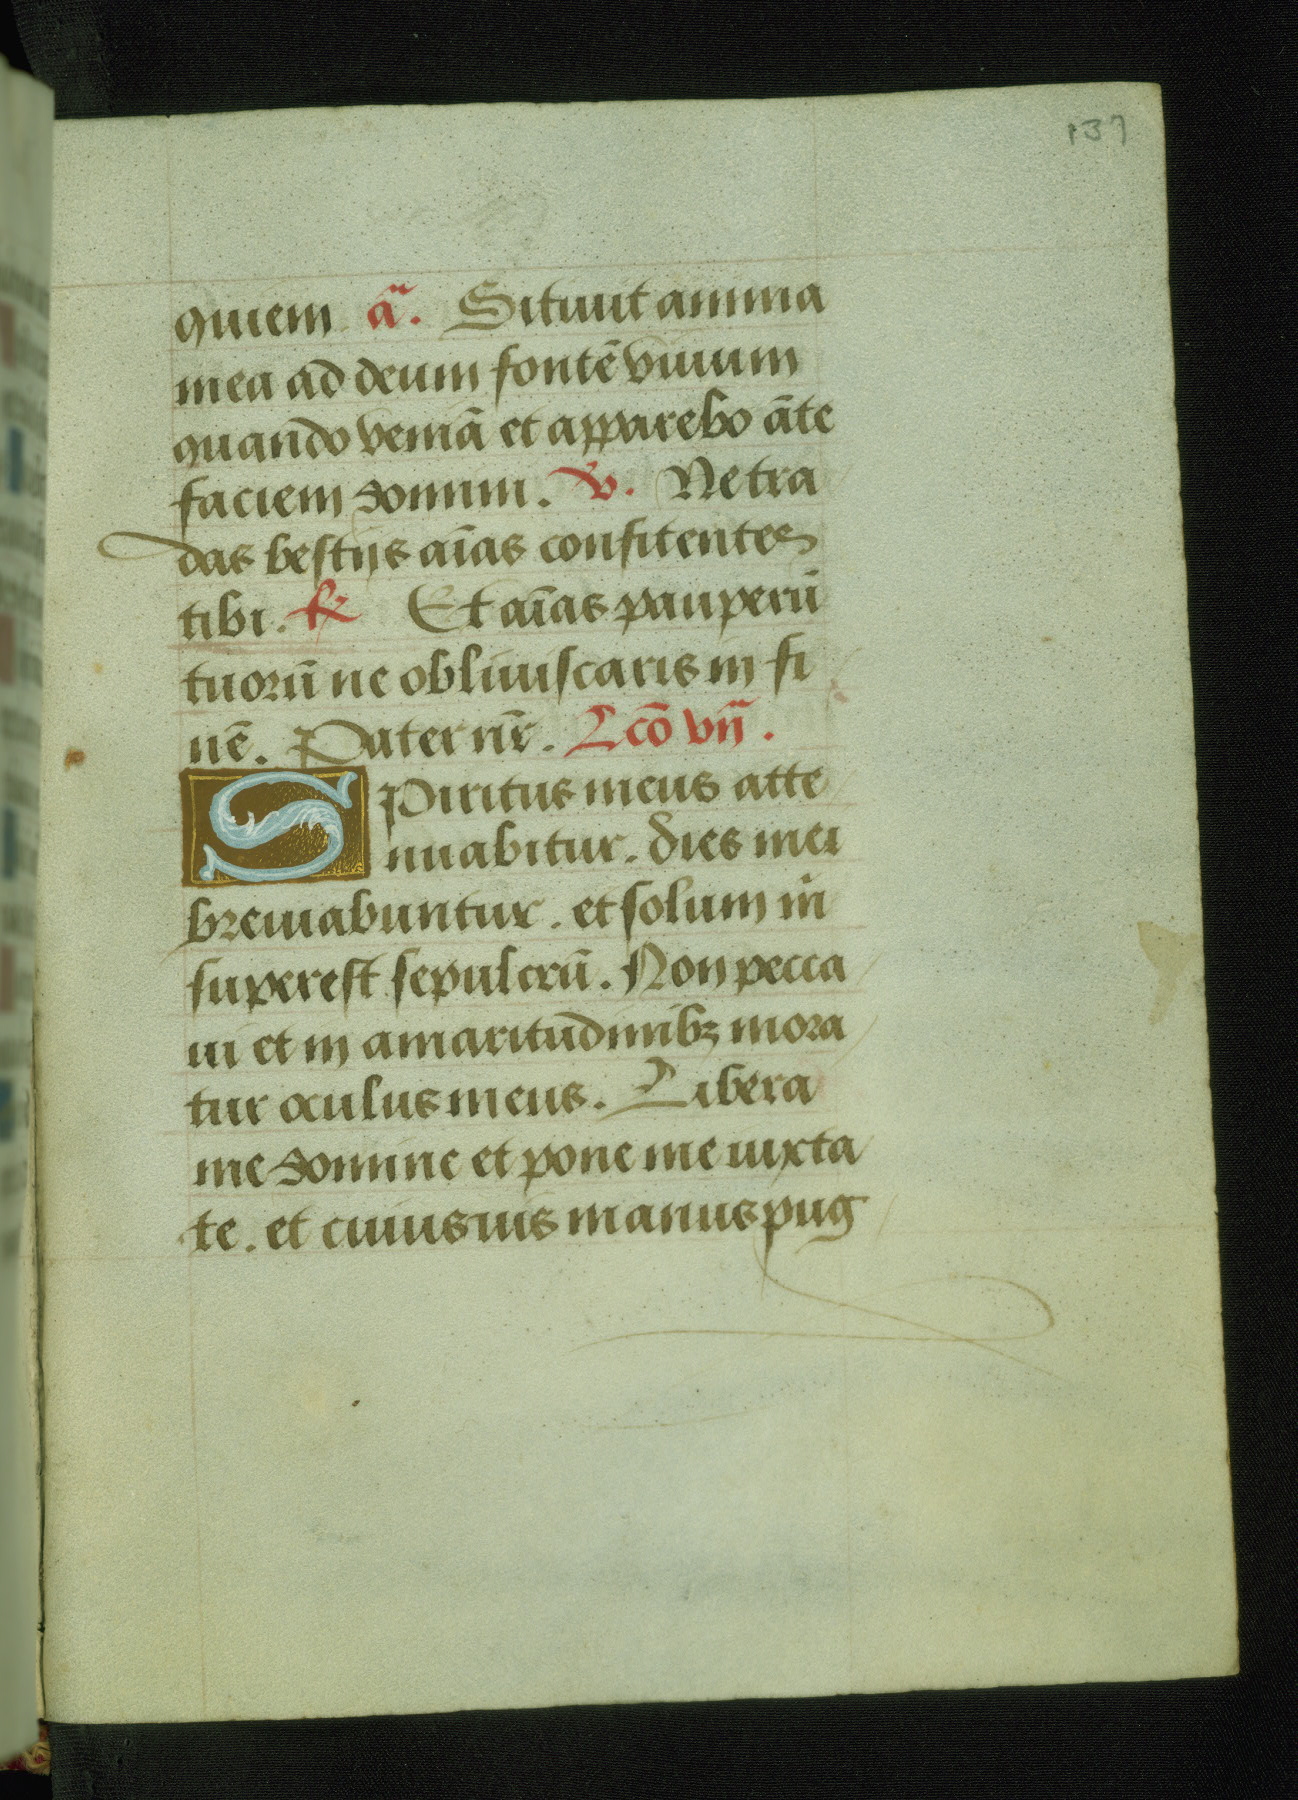 137
quiem ã. Sitiuit anima
mea ad deum fontē viuum
quando veniā et apparebo āte
faciem domini. v. Ne tra
das bestijs aīas confitentes
tibi. R Et aīas pauperū
tuorū ne obliuiscaris in fi
nē. Pater nr̄. Lcō vij.
Spiritus meus atte
nuabitur. dies mei
breuiabuntur. et solum m̄
superest sepulcrū. Non pecca
ui et in amaritudinibꝫ mora
tur oculus meus. Libera
me domine et pone me iuxta
te. et cuiusuis manus pug